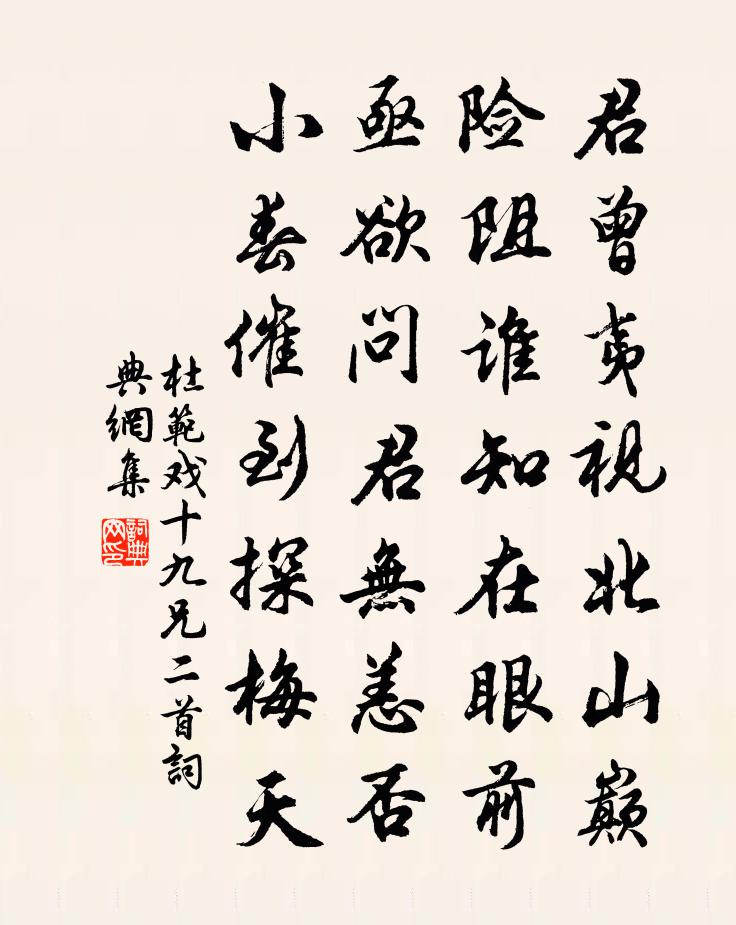 君曾夷視北山巔
险阻谁知在眼前
亟欲问君無恙否
小春催到探梅天
杜範戏十九兄二首詞
典網集
詞典網印